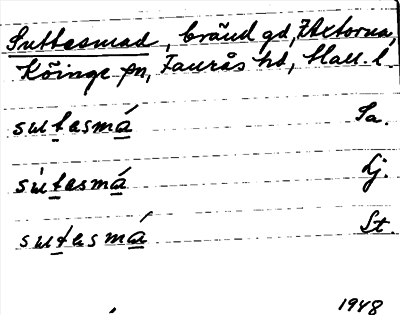 Suttasmad, bränd gd, Äktorna,
Köinge sn, Faurås hd, Hall. l.
sutasmá Sa.
sùtasmá Lj.
sutasmá St.
1948